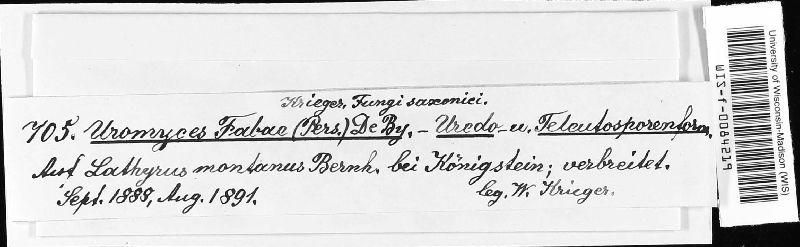 Krieger, Fungi saxonici.
705. Uromyces Fabae (Pers.) De By. – Uredo- u. Teleutosporenform.
Auf Lathyrus montanus Bernh. bei Königstein; verbreitet.
Sept. 1888, Aug. 1891. leg. W. Krieger.
University of Wisconsin-Madison (WIS)
WIS-f-0084219